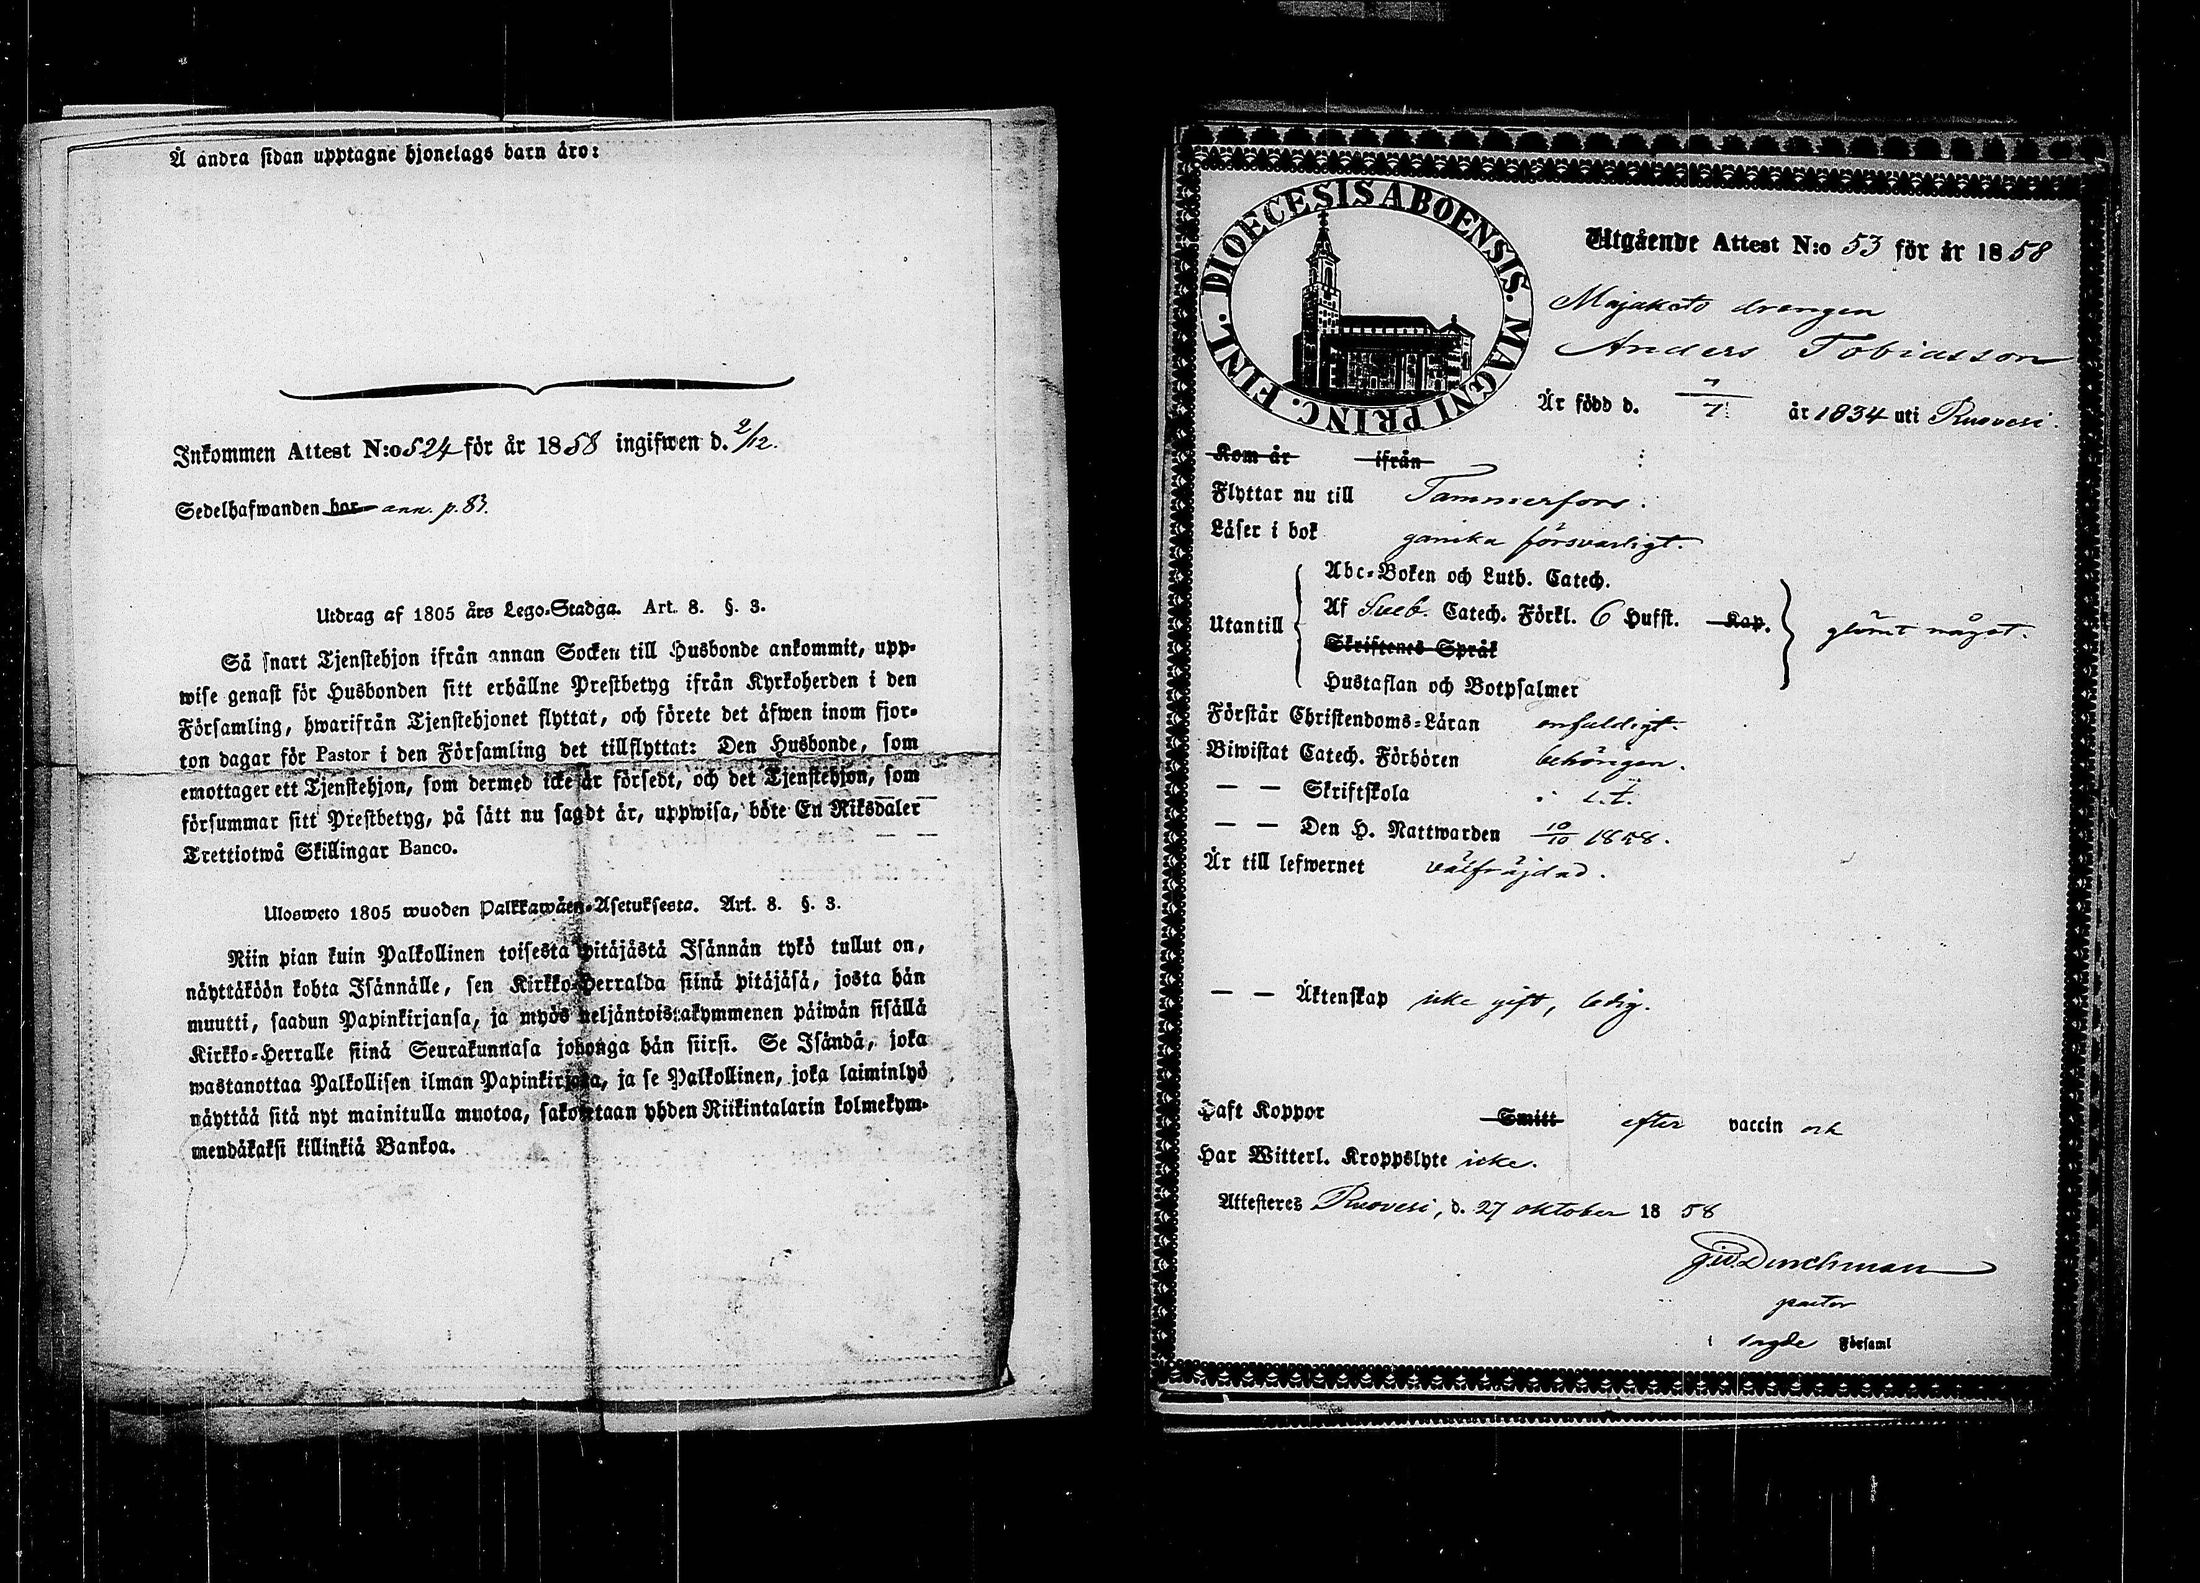 Å andra sidan upptagne hjonelags barn äro:
Inkommen Attest N:o 524 för år 1858 ingifwen d. 2/12.
Sedelhafwanden har ann. p. 83.
Utdrag af 1805 års Lego-Stadga. Art. 8. §. 3.
Så snart Tjenstehjon ifrån annan Socken till Husbonde ankommit, upp-
wise genast för Husbonden sitt erhållne Prestbetyg ifrån Kyrkoherden i den
Församling, hwarifrån Tjenstehjonet flyttat, och förete det äfwen inom fjor-
ton dagar för Pastor i den Församling det tillflyttat: Den Husbonde, som
emottager ett Tjenstehjon, som dermed icke är försedt, och det Tjenstehjon, som
försummar sitt Prestbetyg, på sätt nu sagdt är, uppwisa, böte En Riksdaler
Trettiotwå Skillingar Banco.
Ulosweto 1805 wuoden Palkkawäen-Asetuksesta. Art. 8. §. 3.
Niin pian kuin Palkollinen toisesta pitäjästä Isännän tykö tullut on,
näyttäköön kohta Isännälle, sen Kirkko-Herralda siinä pitäjäsä, josta hän
muutti, saadun Papinkirjansa, ja myös neljäntoistakymmenen päiwän sisällä
Kirkko-Herralle siinä Seurakunnasa johonga hän siirsi. Se Isändä, joka
wastanottaa Palkollisen ilman Papinkirjata, ja se Palkollinen, joka laiminlyö
näyttää sitä nyt mainitulla muotoa, sakotetaan yhden Riikintalarin kolmekym-
mendäkaksi killinkiä Bankoa.
DIOECESIS ABOENSIS. MAGNI PRINC. FINL.
Utgående Attest N:o 53 för år 1858
Majakats drengen
Anders Tobiasson
Är född d. år 1834 uti Ruovesi.
Kom år ifrån
Flyttar nu till Tammerfors.
Läser i bok ganska försvarligt.
Utantill
Abc-Boken och Luth. Catech.
Af Sveb. Catech. Förkl. 6 Hufst. Kap.
Skriftenes Språk
Hustaflan och Botpsalmer
glömt något.
Förstår Christendoms-Läran enfaldigt.
Biwistat Catech. Förhören behörigen.
— — Skriftskola
— — Den H. Nattwarden 10/10 1858.
Är till lefwernet välfräjdad.
— — Äktenskap icke gift, ledig.
Haft Koppor Smitt efter vaccin och
Har Witterl. Kroppslyte icke.
Attesteres Ruovesi, d. 27 oktober 1858
pastor
i Församl